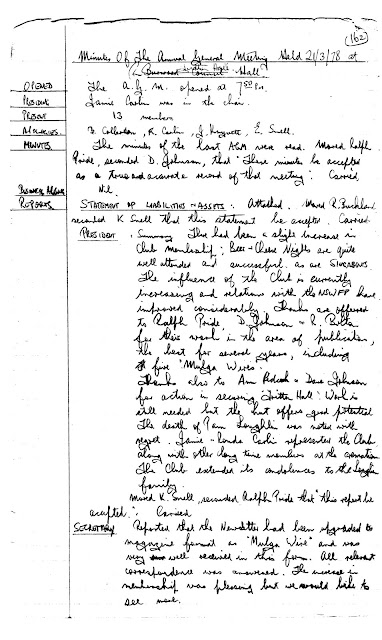 (162)
Minutes Of The Annual General Meeting Held 21/3/78 at
Hall)
OPENED The A.G.M. opened at 7:50 P.M.
PRESIDENT Jamie Carlin was in the chair.
PRESENT 13 members
APOLOGIES R. Carlin, J. E. Snell.
MINUTES The minutes of the last AGM were read. Moved Ralph
Pride, seconded D. Johnson, that "These minutes be accepted
as a true and accurate record of that meeting". Carried
Nil.
REPORTS STATEMENT OF LIABILITIES + ASSETS : Attached. Moved R. Buckland
seconded K Snell that this statement be accepted. Carried.
PRESIDENT. Summary There had been a slight increase in
Club membership; Beer + Cheese Nights are quite
well attended and successful as are
The influence of the Club is currently
increasing and relations with the NSWFP have
improved considerably. Thanks are offered
to Ralph Pride, D. Johnson + R.
for their work in the area of publication,
the best for several years, including
five "Mulga Wires".
Thanks also to Ann + Dave Johnson
for action in securing Hall: Work is
still needed but the hut offers good potential
The death of Pam was noted with
regret. Jamie + represented the Club
along with other long time members at the cremation
The Club extended its condolences to the
family.
Moved K. Snell, seconded Ralph Pride that "this report be
accepted". Carried
SECRETARY Reported that the Newsletter had been upgraded to
magazine format as "Mulga Wire" and was
very well received in this form. All relevant
correspondence was answered. The increase in
membership was pleasing but we would like to
see more.